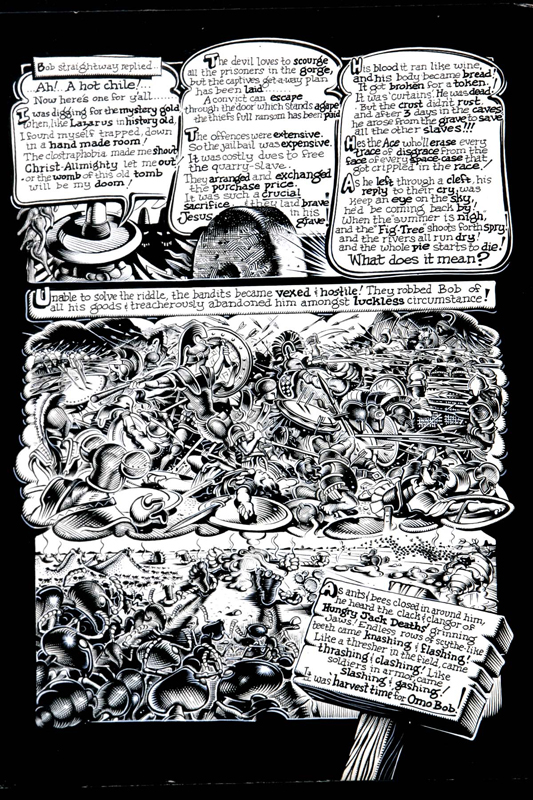 Bob straightway replied...
Ah!.. A hot chile!...
Now here's one for y'all......
I was digging for the mystery gold
when, like Lazarus in history old,
I found myself trapped, down
in a hand made room!
The clostraphobia made me shout
Christ Almighty let me out!
- or the womb of this old tomb
will be my doom!
The devil loves to scourge
all the prisoners in the gorge,
but the captives get-a-way plan
has been laid.......
A convict can escape
through the door which stands agape
if the thiefs full ransom has been paid
The offences were extensive.
So the jailbail was expensive.
It was costly dues to free
the quarry-slave..
They arranged and exchanged
the purchase price.
It was such a crucial
sacrifice, if they laid brave
Jesus in his
grave!
His blood it ran like wine,
and his body became bread!
It got broken for a token.
It was 'curtains'. He was dead.
But the crust didn't rust
and after 3 days in the caves
he arose from the grave to save
all the other slaves!!!
He's the Ace who'll erase every
trace of disgrace from the
face of every space-case that
got crippled in the race!
As he left through a cleft, his
reply to their cry, was
keep an eye on the sky,
he'd be coming back by!
When the summer is nigh,
and the "Fig-Tree" shoots forth spry,
and the rivers all run dry!
and the whole pie starts to die!
What does it mean?
Unable to solve the riddle, the bandits became vexed & hostile! They robbed Bob of
all his goods & treacherously abandoned him amongst luckless circumstance!
As ants & bees closed in around him,
he heard the clack & clangor of
Hungry Jack Deaths' grinning
Jaws! Endless rows of scythe-like
teeth came knashing & flashing!
Like a thresher in the field, came
thrashing & clashing! Like
soldiers in armor, came
slashing & gashing!
It was harvest time for Omo Bob.